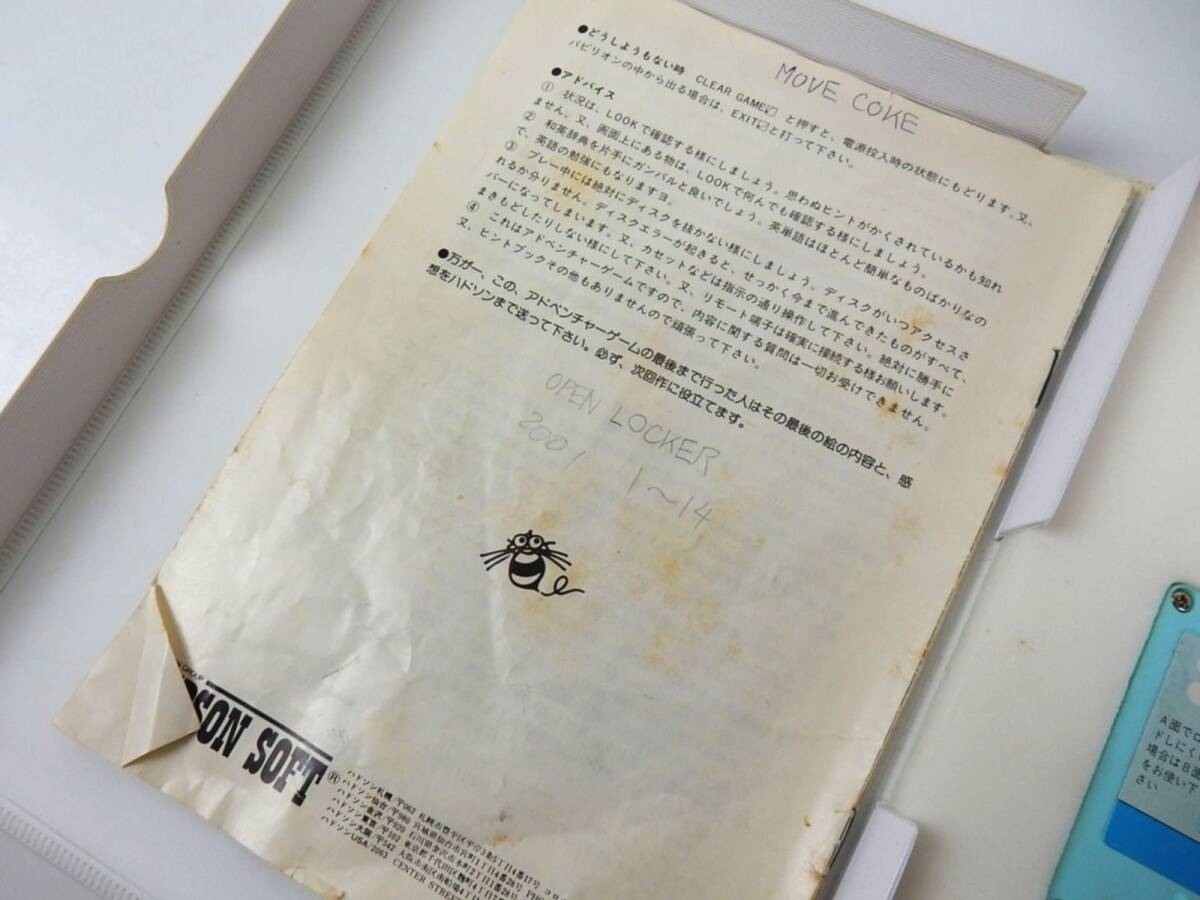 MOVE COKE
●どうしようもない時 CLEAR GAME と押すと、電源投入時の状態にもどります。又、
パビリオンの中から出る場合は、EXIT と打って下さい。
●アドバイス
① 状況は、LOOKで確認する様にしましょう。思わぬヒントがかくされているかも知れ
ません。又、画面上にある物は、LOOKで何んでも確認する様にしましょう。
② 和英辞典を片手にガンバルと良いでしょう。英単語はほとんど簡単なものばかりなの
で、英語の勉強にもなりますヨ。
③ プレー中には絶対にディスクを抜かない様にしましょう。ディスクがいつアクセスさ
れるか分りません。ディスクエラーが起きると、せっかく今まで進んできたものがすべて、
パーになってしまいます。又、カセットなどは指示の通り操作して下さい。絶対に勝手に
まきもどしたりしない様にして下さい。又、リモート端子は確実に接続する様お願いします。
④ これはアドベンチャーゲームですので、内容に関する質問は一切お受けできません。
又、ヒントブックその他もありませんので頑張って下さい。
●万が一、この、アドベンチャーゲームの最後まで行った人はその最後の絵の内容と、感
想をハドソンまで送って下さい。必ず、次回作に役立てます。
OPEN LOCKER
2001 1〜14
GROUP
SON SOFT ®
ハドソン札幌/〒062 札幌市豊平区平岸3条5丁目4番17号
ハドソン仙台/〒980
ハドソン金沢/〒920
ハドソン東京/〒102 東京都千代田区麹町4丁
ハドソン大阪/〒542 大阪市南区南船場4丁
ハドソンUSA/2063 CENTER STREE
A面でロ
ドしにくい
場合はB面
をお使い下
さい